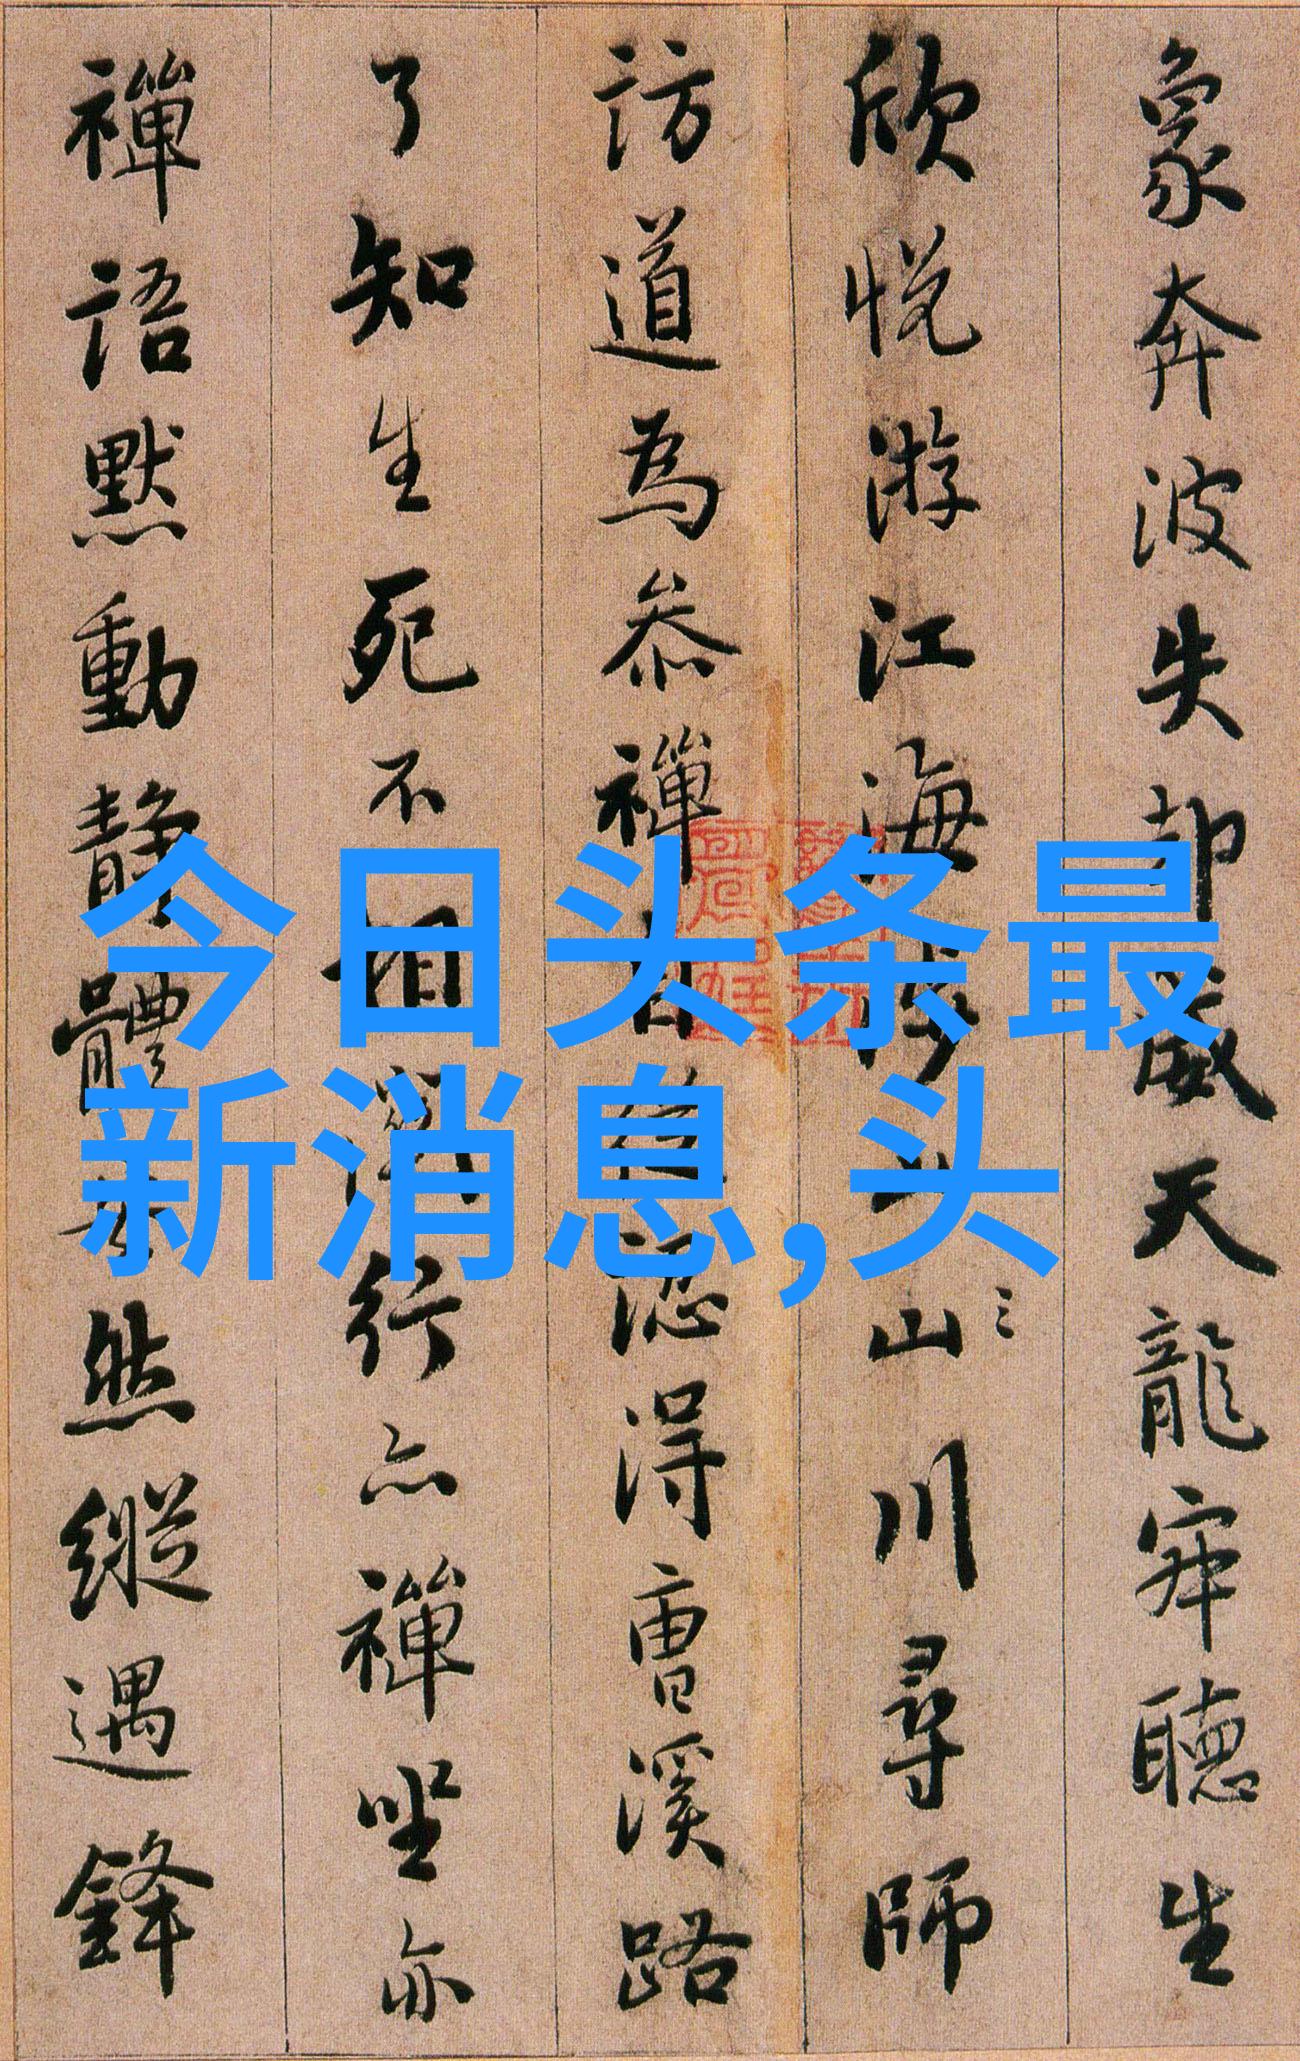 象奔波失却威天龍寂聽生
欣悅游江海涉山川尋師
訪道為參禪自從認得曹溪路
了知生死不相關行亦禪坐亦
禪語默動靜體安然縱遇鋒
今日头条最
新消息,头